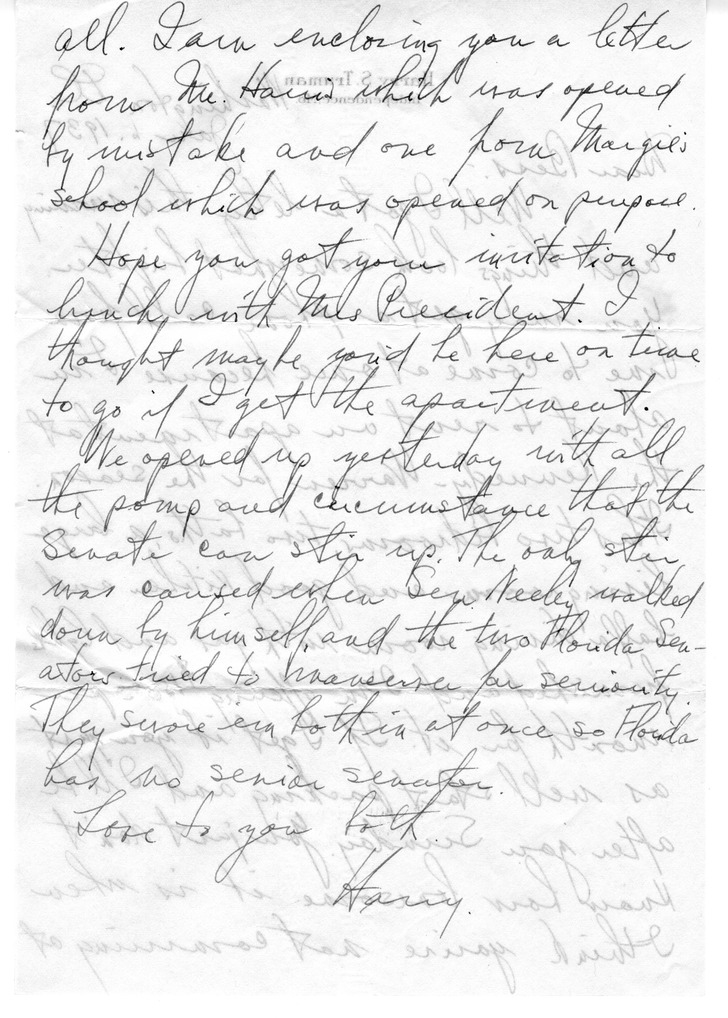 all. I am enclosing you a letter
from Mr. Harris which was opened
by mistake and one from Margie's
school which was opened on purpose.
Hope you got your invitation to
lunch with Mrs President. I
thought maybe you'd be here on time
to go if I get the apartment.
We opened up yesterday with all
the pomp and circumstance that the
Senate can stir up. The only stir
was caused when Sen. Neely walked
down by himself, and the two Florida Sen-
ators tried to maneuver for seniority.
They swore em both in at once so Florida
has no senior senator.
Love to you both.
Harry.